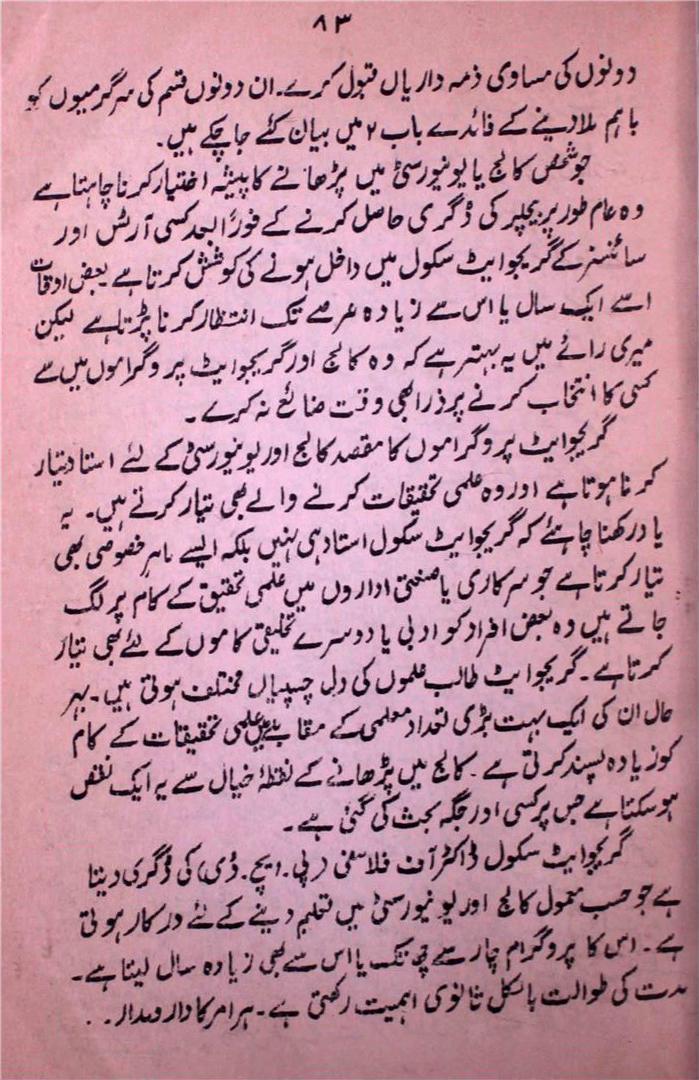 ۸۳
دونوں کی مساوی ذمہ داریاں قبول کرے۔ ان دونوں قسم کی سرگرمیوں کو
باہم ملا دینے کے فائدے باب ۲ میں بیان کئے جا چکے ہیں۔
جو شخص کالج یا یونیورسٹی میں پڑھانے کا پیشہ اختیار کرنا چاہتا ہے
وہ عام طور پر بیچلر کی ڈگری حاصل کرنے کے فوراً بعد کسی آرٹس اور
سائنسز کے گریجوایٹ سکول میں داخل ہونے کی کوشش کرتا ہے بعض اوقات
اسے ایک سال یا اس سے زیادہ عرصے تک انتظار کرنا پڑتا ہے لیکن
میری رائے میں یہ بہتر ہے کہ وہ کالج اور گریجوایٹ پروگراموں میں سے
کسی کا انتخاب کرنے پر ذرا بھی وقت ضائع نہ کرے۔
گریجوایٹ پروگراموں کا مقصد کالج اور یونیورسٹی کے لئے استاد تیار
کرنا ہوتا ہے اور وہ علمی تحقیقات کرنے والے بھی تیار کرتے ہیں۔ یہ
یاد رکھنا چاہئے کہ گریجوایٹ سکول استاد ہی نہیں بلکہ ایسے ماہرِ خصوصی بھی
تیار کرتا ہے جو سرکاری یا صنعتی اداروں میں علمی تحقیق کے کام پر لگ
جاتے ہیں وہ بعض افراد کو ادبی یا دوسرے تخلیقی کاموں کے لئے بھی تیار
کرتا ہے۔ گریجوایٹ طالب علموں کی دل چسپیاں مختلف ہوتی ہیں۔ بہر
حال ان کی ایک بہت بڑی تعداد معلمی کے مقابلے میں علمی تحقیقات کے کام
کو زیادہ پسند کرتی ہے۔ کالج میں پڑھانے کے نقطۂ خیال سے یہ ایک نقص
ہو سکتا ہے جس پر کسی اور جگہ بحث کی گئی ہے۔
گریجوایٹ سکول ڈاکٹر آف فلاسفی (پی۔ ایچ۔ ڈی) کی ڈگری دیتا
ہے جو حسب معمول کالج اور یونیورسٹی میں تعلیم دینے کے لئے درکار ہوتی
ہے۔ اس کا پروگرام چار سے چھ تک یا اس سے بھی زیادہ سال لیتا ہے۔
مدت کی طوالت بالکل ثانوی اہمیت رکھتی ہے۔ ہر امر کا دارومدار ۔ ۔